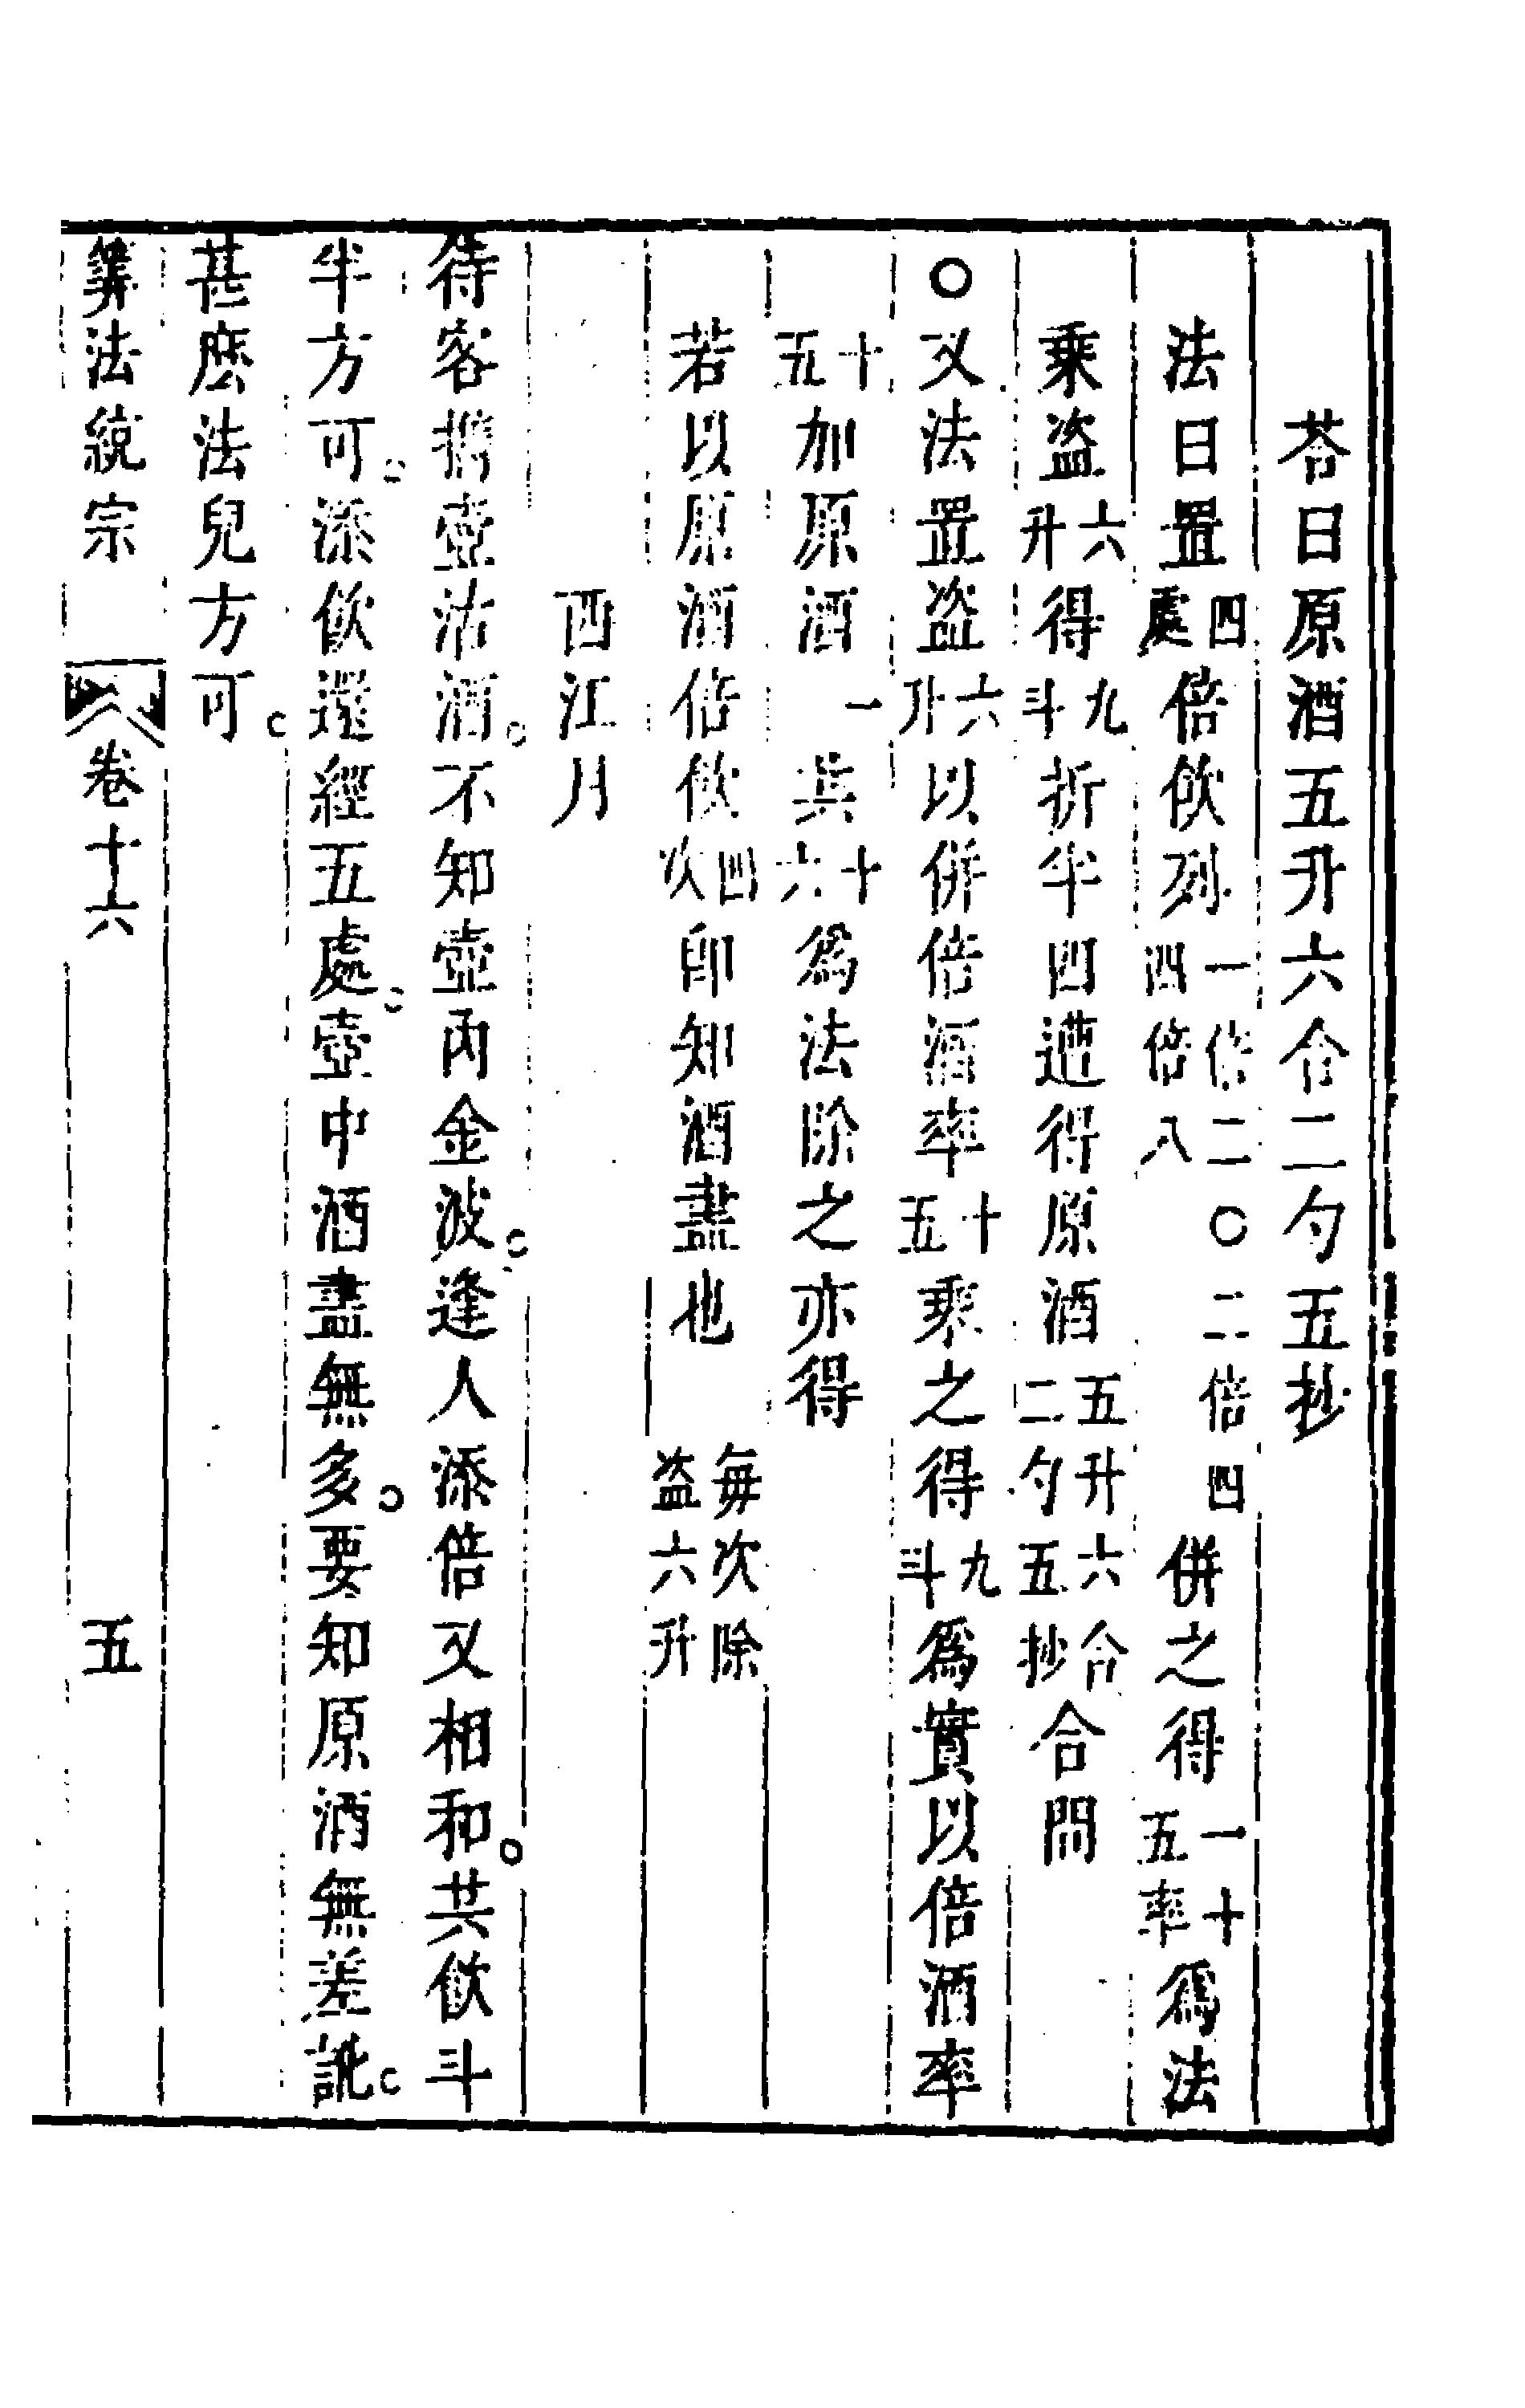 荅曰原酒五升六合二勺五抄
法曰置四處倍飲列一倍二〇二倍四四倍八併之得一十五率爲法
乘盗六升得九斗折半四遭得原酒五升六合二勺五抄合問
〇又法置盗六升以併倍酒率十五乘之得九斗爲實以倍酒率
十五加原酒一共十六爲法除之亦得
若以原酒倍飲四次卽知酒盡也每次除盗六升
西江月
待客携壺沽酒。不知壺内金波。逢人添倍又相和。共飲斗
半方可。添飲還經五處。壺中酒盡無多。要知原酒無差訛。
甚麽法兒方可。
筭法統宗 卷十六 五